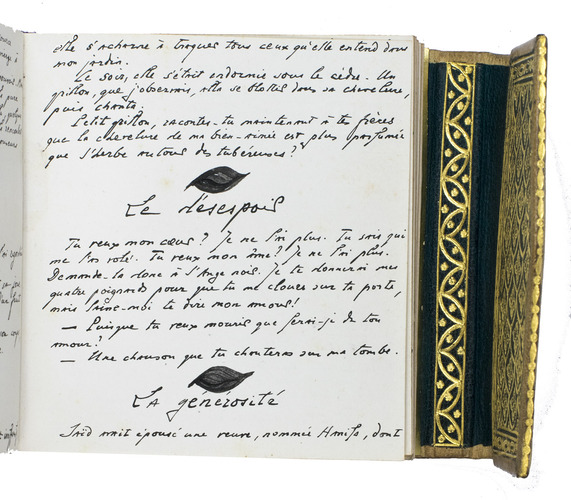 elle s'acharne à traquer tous ceux qu'elle entend dans
mon jardin.
Ce soir, elle s'était endormie sous le cèdre. Un
grillon, que j'observais, alla se blottir dans sa chevelure,
puis chanta.
Petit grillon, racontes-tu maintenant à tes frères
que la chevelure de ma bien-aimée est plus parfumée
que l'herbe autour des tubéreuses?
Le désespoir
Tu veux mon cœur? Je ne l'ai plus. Tu sais qui
me l'a volé. Tu veux mon âme? Je ne l'ai plus.
Demande-la donc à l'Ange noir. Je te donnerai mes
quatre poignards pour que tu me cloues sur ta porte,
mais laisse-moi te dire mon amour!
— Puisque tu veux mourir que ferai-je de ton
amour?
— Une chanson que tu chanteras sur ma tombe.
La générosité
Saïd avait épousé une veuve, nommée Hamisa, dont